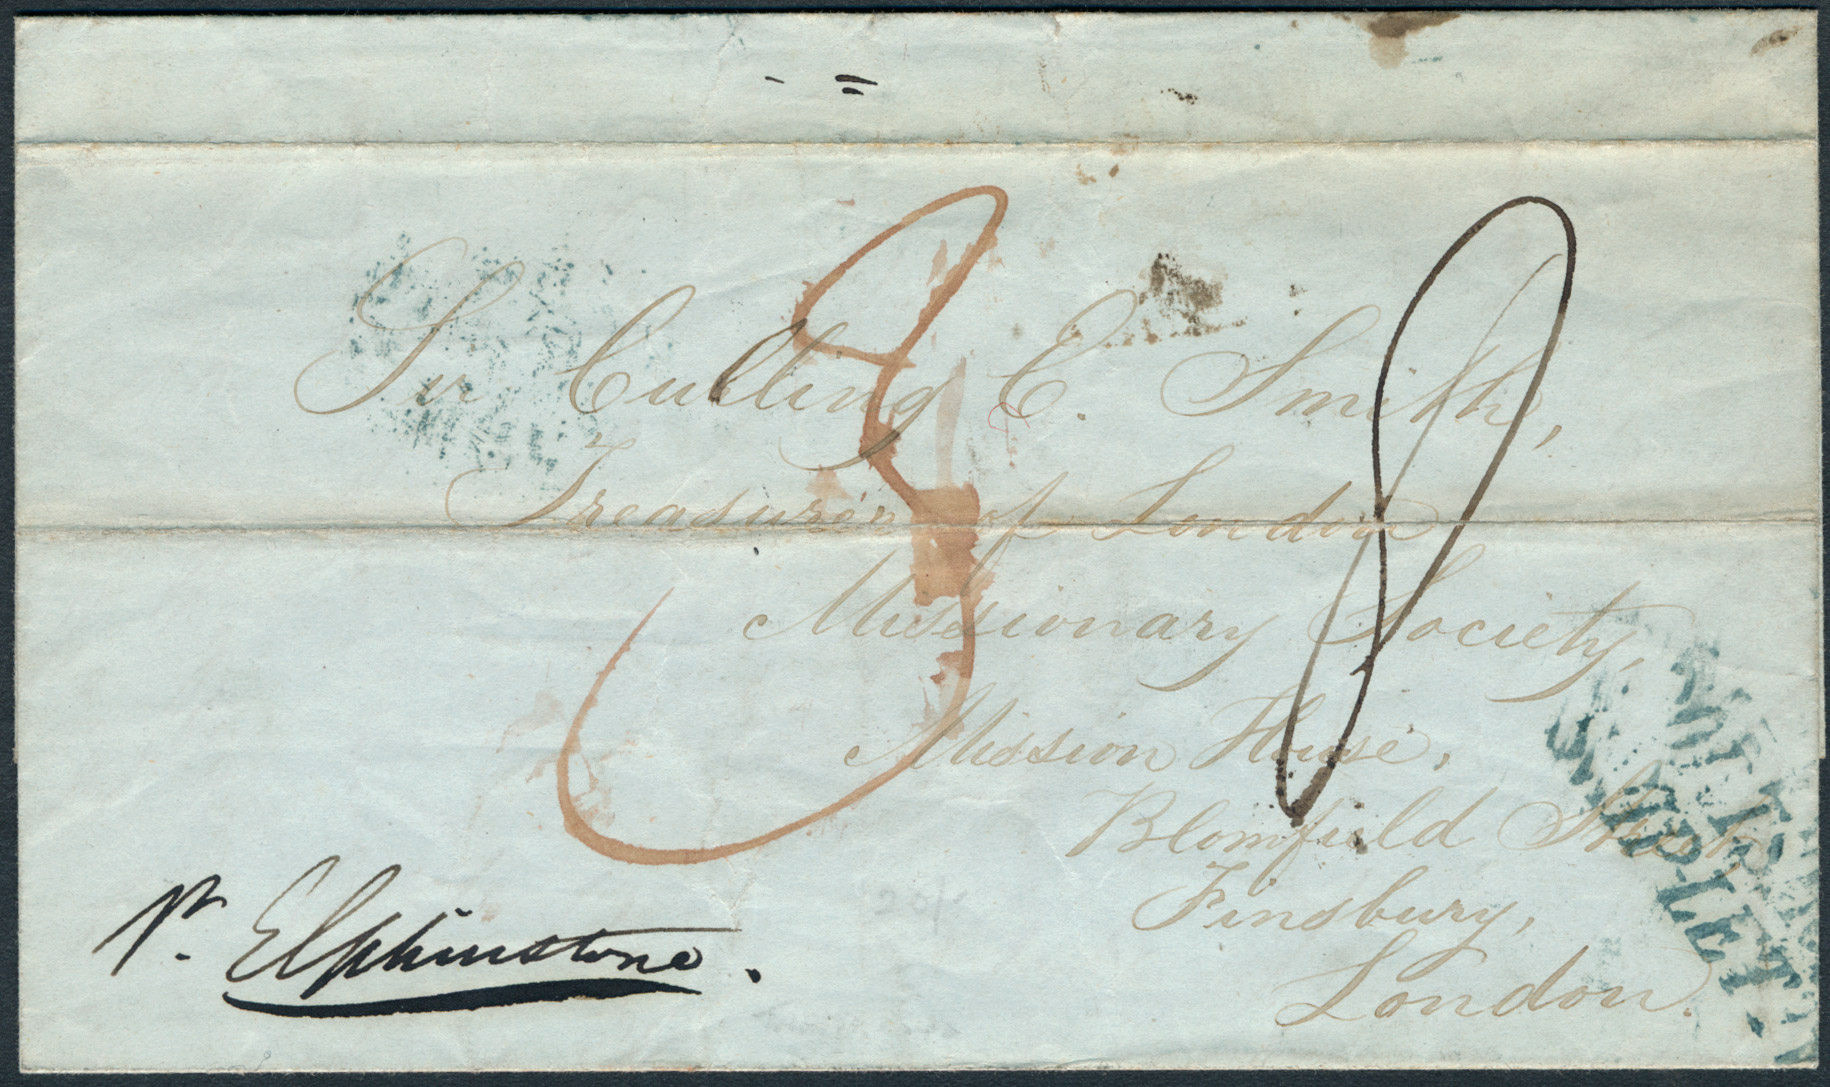 Sir Culling E. Smith,
Treasurer of London
Missionary Society,
Mission House,
Blomfield Street
Finsbury,
London.
8
pr. Elphinstone.
SHIP LETTER